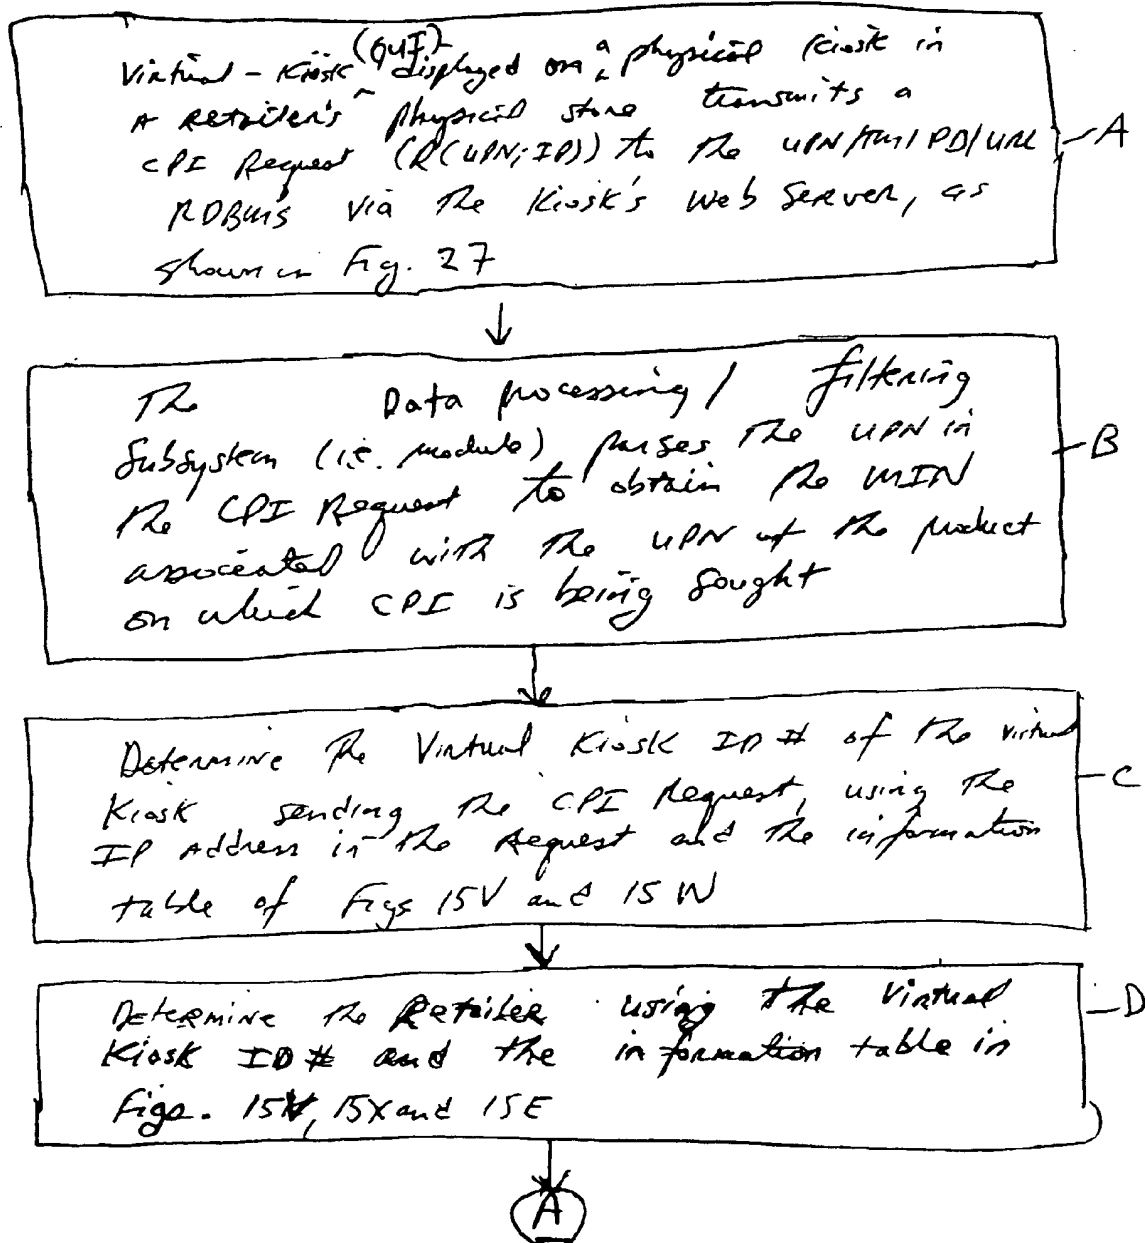 (GUI)
Virtual-Kiosk displayed on a physical kiosk in
A Retailer's physical store transmits a
CPI Request (R(UPN; IP)) to the UPN/TM/PD/URL
RDBMS via the Kiosk's Web Server, as
shown in Fig. 27
A
The Data processing / filtering
Subsystem (i.e. module) parses the UPN in
the CPI Request to obtain the MIN
associated with the UPN of the product
on which CPI is being sought
B
Determine the Virtual Kiosk ID # of the virtual
Kiosk sending the CPI Request, using the
IP Address in the Request and the information
table of Figs 15V and 15W
C
Determine the Retailer using the Virtual
Kiosk ID # and the information table in
Figs. 15, 15X and 15E
D
A